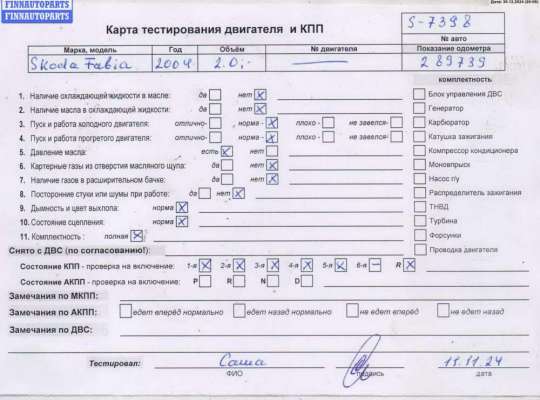 FINNAUTOPARTS
FINNAUTOPARTS
Карта тестирования двигателя и КПП
S-7398
№ авто
Марка, модель Год Объём № двигателя Показание одометра
Skoda Fabia 2004 2.0,- — 289739
комплектность
1. Наличие охлаждающей жидкости в масле: да нет x
Блок управления ДВС
2. Наличие масла в охлаждающей жидкости: да нет x
Генератор
3. Пуск и работа холодного двигателя: отлично- норма - x плохо - не завелся-
Карбюратор
4. Пуск и работа прогретого двигателя: отлично- норма - x плохо - не завелся-
Катушка зажигания
5. Давление масла: есть x нет
Компрессор кондиционера
6. Картерные газы из отверстия масляного щупа: да нет x
Моновпрыск
7. Наличие газов в расширительном бачке: да нет x
Насос г/у
8. Посторонние стуки или шумы при работе: да нет x
Распределитель зажигания
9. Дымность и цвет выхлопа: норма x
ТНВД
10. Состояние сцепления: норма x
Турбина
11. Комплектность : полная x
Форсунки
Снято с ДВС (по согласованию!):
Проводка двигателя
Состояние КПП - проверка на включение: 1-я x 2-я x 3-я x 4-я x 5-я x 6-я — R x
Состояние АКПП - проверка на включение: P R N D
Замечания по МКПП:
Замечания по АКПП: едет вперёд нормально едет назад нормально не едет вперёд не едет назад
Замечания по ДВС:
Тестировал: Саша 11.11.24
ФИО подпись дата